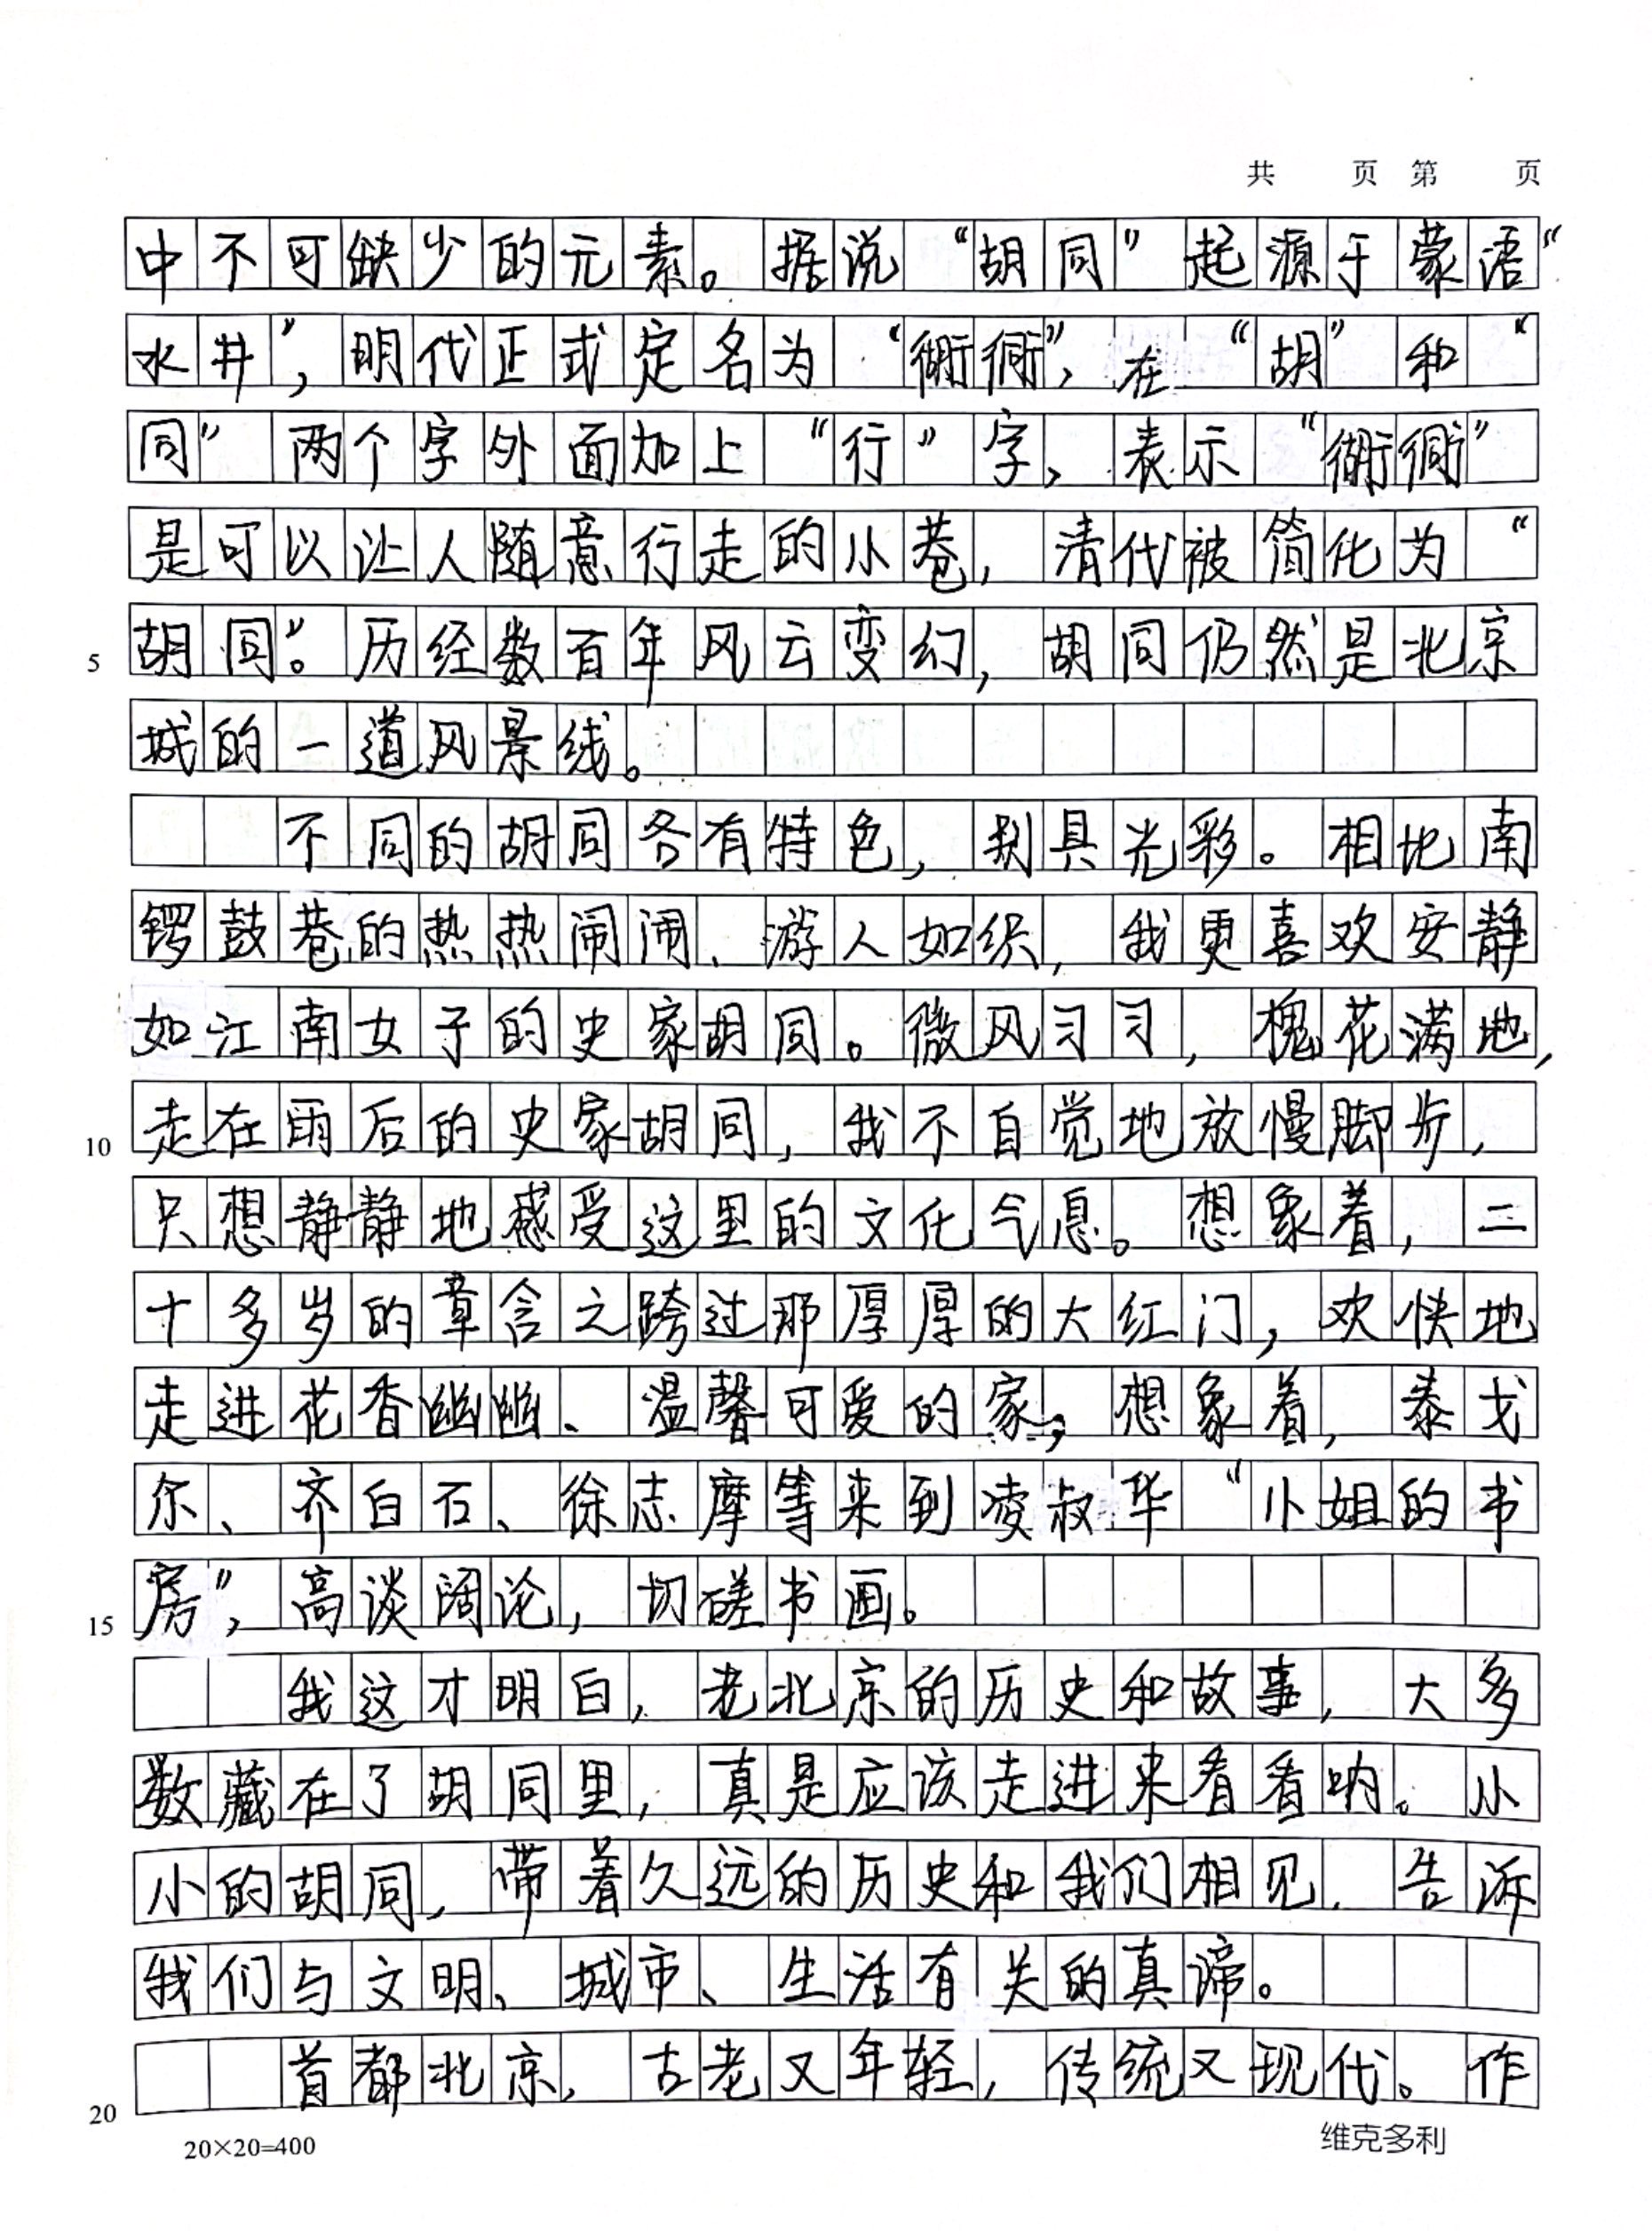 共 页 第 页
中不可缺少的元素。据说“胡同”起源于蒙语“
水井”，明代正式定名为“衚衕”，在“胡”和“
同”两个字外面加上“行”字，表示“衚衕”
是可以让人随意行走的小巷，清代被简化为“
5 胡同”。历经数百年风云变幻，胡同仍然是北京
城的一道风景线。
不同的胡同各有特色，别具光彩。相比南
锣鼓巷的热热闹闹、游人如织，我更喜欢安静
如江南女子的史家胡同。微风习习，槐花满地，
10 走在雨后的史家胡同，我不自觉地放慢脚步，
只想静静地感受这里的文化气息。想象着，二
十多岁的章含之跨过那厚厚的大红门，欢快地
走进花香幽幽、温馨可爱的家；想象着，泰戈
尔、齐白石、徐志摩等来到凌叔华“小姐的书
15 房”，高谈阔论，切磋书画。
我这才明白，老北京的历史和故事，大多
数藏在了胡同里，真是应该走进来看看呐。小
小的胡同，带着久远的历史和我们相见，告诉
我们与文明、城市、生活有关的真谛。
20 首都北京，古老又年轻，传统又现代。作
20×20=400 维克多利